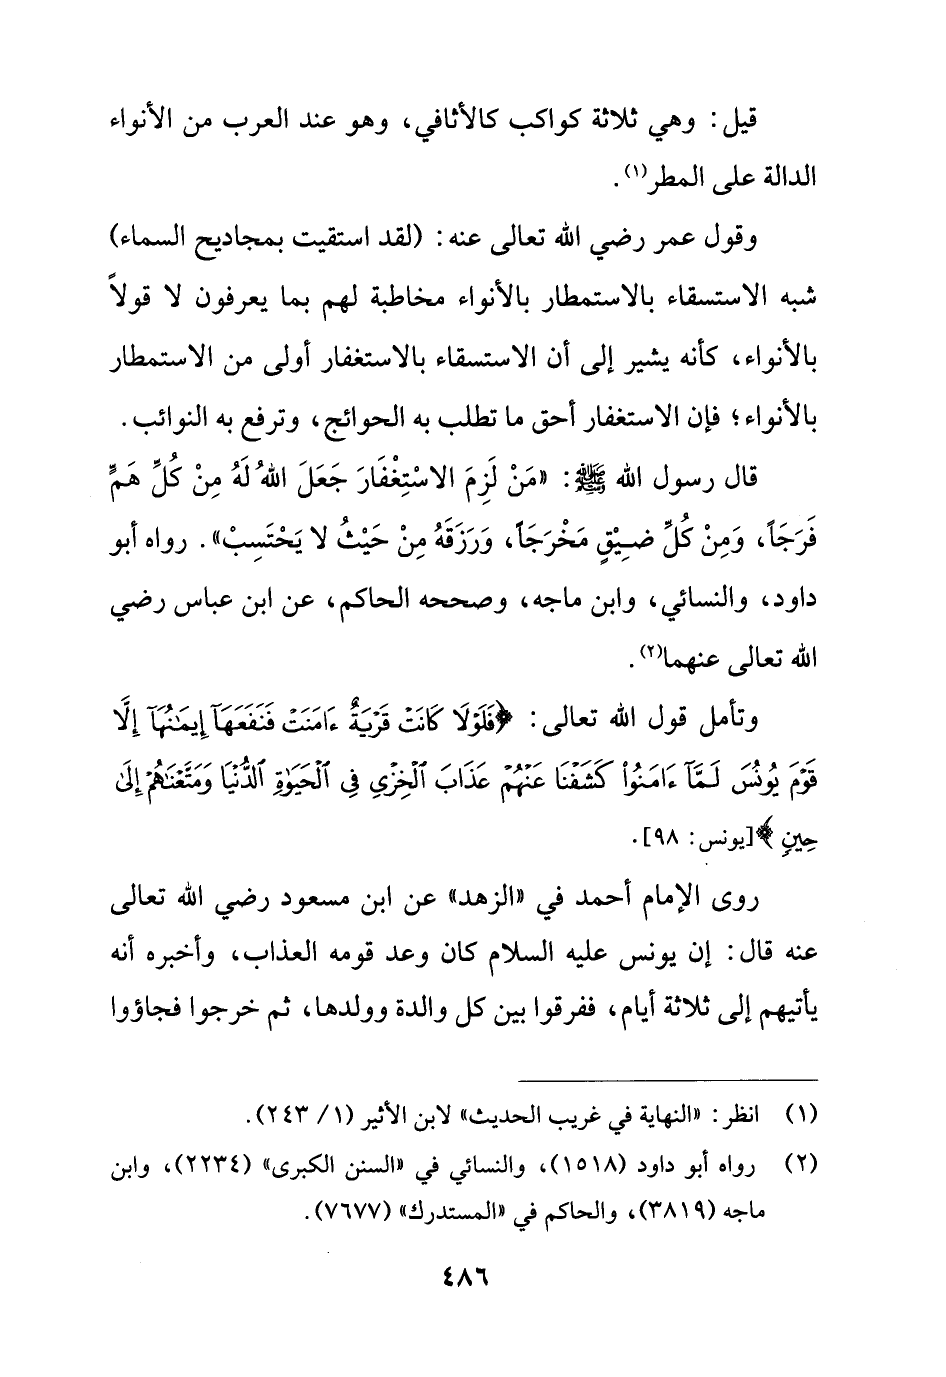 قيل: وهي ثلاثة كواكب كالأثافي، وهو عند العرب من الأنواء
الدالة على المطر(١).
وقول عمر رضي الله تعالى عنه: (لقد استقيت بمجاديح السماء)
شبه الاستسقاء بالاستمطار بالأنواء مخاطبة لهم بما يعرفون لا قولاً
بالأنواء، كأنه يشير إلى أن الاستسقاء بالاستغفار أولى من الاستمطار
بالأنواء؛ فإن الاستغفار أحق ما تطلب به الحوائج، وترفع به النوائب.
قال رسول الله ﷺ: «مَنْ لَزِمَ الاسْتِغْفَارَ جَعَلَ اللهُ لَهُ مِنْ كُلِّ هَمٍّ
فَرَجَاً، وَمِنْ كُلِّ ضِيْقٍ مَخْرَجَاً، وَرَزَقَهُ مِنْ حَيْثُ لا يَحْتَسِبْ». رواه أبو
داود، والنسائي، وابن ماجه، وصححه الحاكم، عن ابن عباس رضي
الله تعالى عنهما(٢).
وتأمل قول الله تعالى: ﴿فَلَوْلَا كَانَتْ قَرْيَةٌ ءَامَنَتْ فَنَفَعَهَآ إِيمَٰنُهَآ إِلَّا
قَوْمَ يُونُسَ لَمَّآ ءَامَنُوا۟ كَشَفْنَا عَنْهُمْ عَذَابَ ٱلْخِزْيِ فِى ٱلْحَيَوٰةِ ٱلدُّنْيَا وَمَتَّعْنَٰهُمْ إِلَىٰ
حِينٍ﴾ [يونس: ٩٨].
روى الإمام أحمد في «الزهد» عن ابن مسعود رضي الله تعالى
عنه قال: إن يونس عليه السلام كان وعد قومه العذاب، وأخبره أنه
يأتيهم إلى ثلاثة أيام، ففرقوا بين كل والدة وولدها، ثم خرجوا فجاؤوا
(١) انظر: «النهاية في غريب الحديث» لابن الأثير (١/ ٢٤٣).
(٢) رواه أبو داود (١٥١٨)، والنسائي في «السنن الكبرى» (٢٢٣٤)، وابن
ماجه (٣٨١٩)، والحاكم في «المستدرك» (٧٦٧٧).
٤٨٦